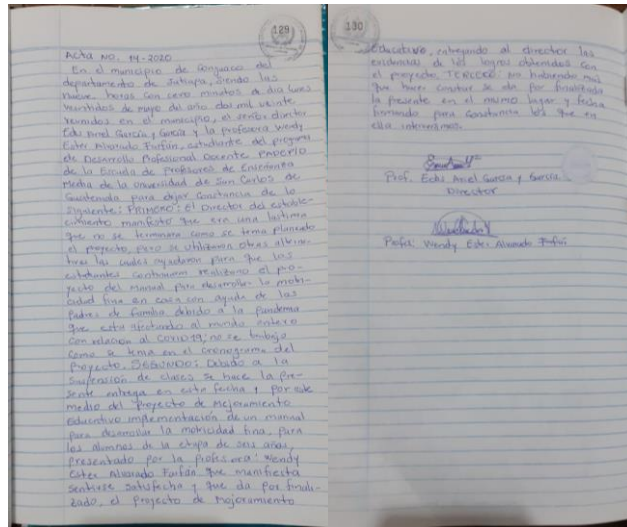 129
Acta No. 14-2020
En el municipio de Conguaco del
departamento de Jutiapa, siendo las
nueve horas con cero minutos a dia lunes
veintidos de mayo del año dos mil veinte
reunidos en el municipio, el señor director
Edu Ariel García y García y la profesora Wendy
Ester Alvarado Farfán, estudiante del programa
de Desarrollo Profesional Docente PADEP/D
de la Escuela de Profesores de Enseñanza
Media de la Universidad de San Carlos de
Guatemala para dejar constancia de lo
siguiente: PRIMERO: El Director del estable-
cimiento manifesto que era una lastima
que no se terminara como se tenia planeado
el proyecto, pero se utilizaron otras alterna-
tivas las cuales ayudaron para que los
estudiantes continuaran realizando el pro-
yecto del manual para desarrollar la motri-
cidad fina en casa con ayuda de los
Padres de familia debido a la pandemia
que esta afectando al mundo entero
con relacion al COVID 19; no se trabajo
como se tenia en el cronograma del
Proyecto. SEGUNDO: Debido a la
suspensión de clases se hace la pre-
sente entrega en esta fecha y por este
medio del Proyecto de Mejoramiento
educativo implementación de un manual
para desarrollar la motricidad fina, para
los alumnos de la etapa de seis años,
presentado por la profesora: Wendy
Ester Alvarado Farfán que manifiesta
sentirse satisfecha y que da por finali-
zado, el Proyecto de Mejoramiento
130
Educativo, entregando al director las
evidencias de los logros obtenidos con
el proyecto, TERCERO: No habiendo más
que hacer constar se da por finalizada
la presente en el mismo lugar y fecha
firmando para constancia los que en
ella intervenimos.
Prof. Edu Ariel García y García
Director
Profa: Wendy Ester Alvarado Farfán